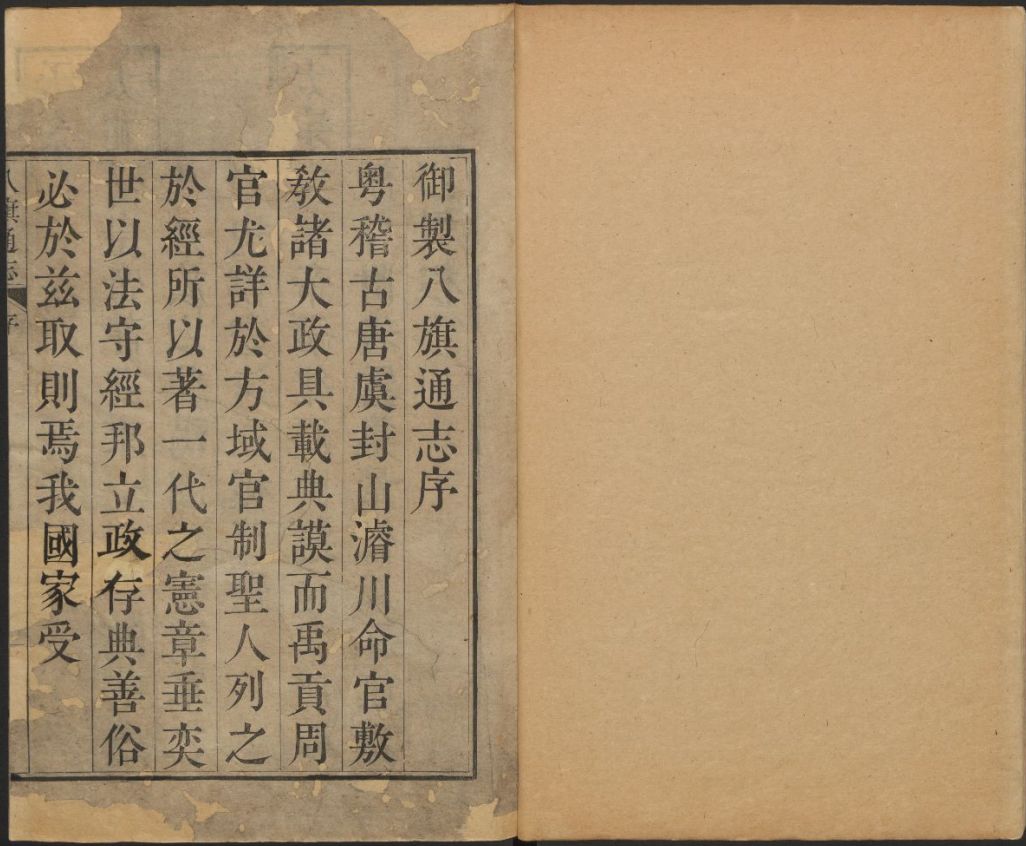 御製八旗通志序
粤稽古唐虞封山濬川命官敷
敎諸大政具載典謨而禹貢周
官尤詳於方域官制聖人列之
於經所以著一代之憲章垂奕
世以法守經邦立政存典善俗
必於兹取則焉我國家受
八旗通志 序